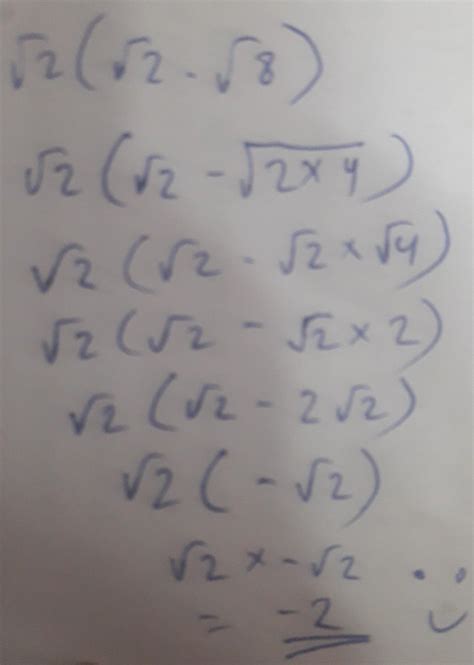 √2(√2 - √8)
√2(√2 - √2×4)
√2(√2 - √2×√4)
√2(√2 - √2×2)
√2(√2 - 2√2)
√2(-√2)
√2×-√2
= -2